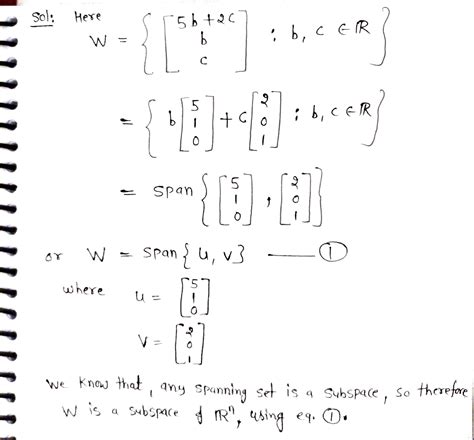 Sol: Here
W = { [5b+2c b c] : b, c ∈ ℝ }
= { b [5 1 0] + c [2 0 1] : b, c ∈ ℝ }
= span { [5 1 0] , [2 0 1] }
or W = span { u, v } —— ①
where u = [5 1 0]
v = [2 0 1]
We know that, any spanning set is a subspace, so therefore
W is a subspace of ℝⁿ, using eq. ①.